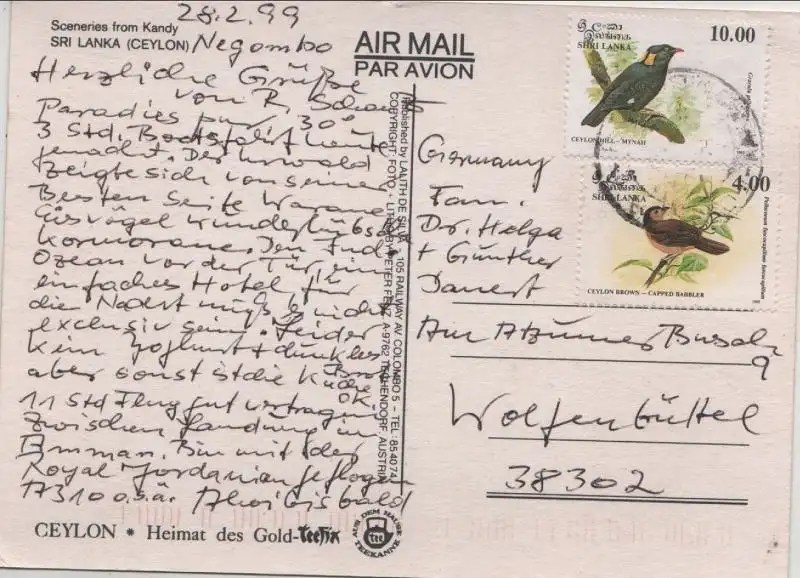 28.2.99
Sceneries from Kandy
SRI LANKA (CEYLON) Negombo
AIR MAIL
PAR AVION
Herzliche Grüße
von R.
Paradies pur, 30°
3 Std. Bootsfahrt heute
gemacht. Der Urwald
zeigte sich von seiner
Besten Seite Warane
Eisvögel wunderhübsch
Kormorane. Den Ind.
Ozean vor der Tür, ein
einfaches Hotel für
die Nacht muß nicht
exclusiv sein. Leider
kein Joghurt + dunkles Brot
aber sonst ist die Küche OK.
11 Std Flug gut vertragen
zwischen Landung in
Amman. Bin mit der
Royal Jordanian geflogen
A310 o.ä. Ahoi bis bald
CEYLON * Heimat des Gold-Teefix
AUS DEM HAUSE
tee
TEEKANNE
Published by LALITH DE SILVA 105 RAILWAY AV COLOMBO 5 – TEL: 854074
COPYRIGHT: FOTO – PETER A-9762 AUSTRIA
ශ්‍රී ලංකා
இலங்கை
SHRI LANKA
10.00
CEYLON HILL – MYNAH
ශ්‍රී ලංකා
இலங்கை
SHRI LANKA
4.00
Pellorneum fuscocapillum fuscocapillum
CEYLON BROWN – CAPPED BABBLER
Germany
Fam.
Dr. Helga
+ Günther
Am Atzumer Busch
9
Wolfenbüttel
38302